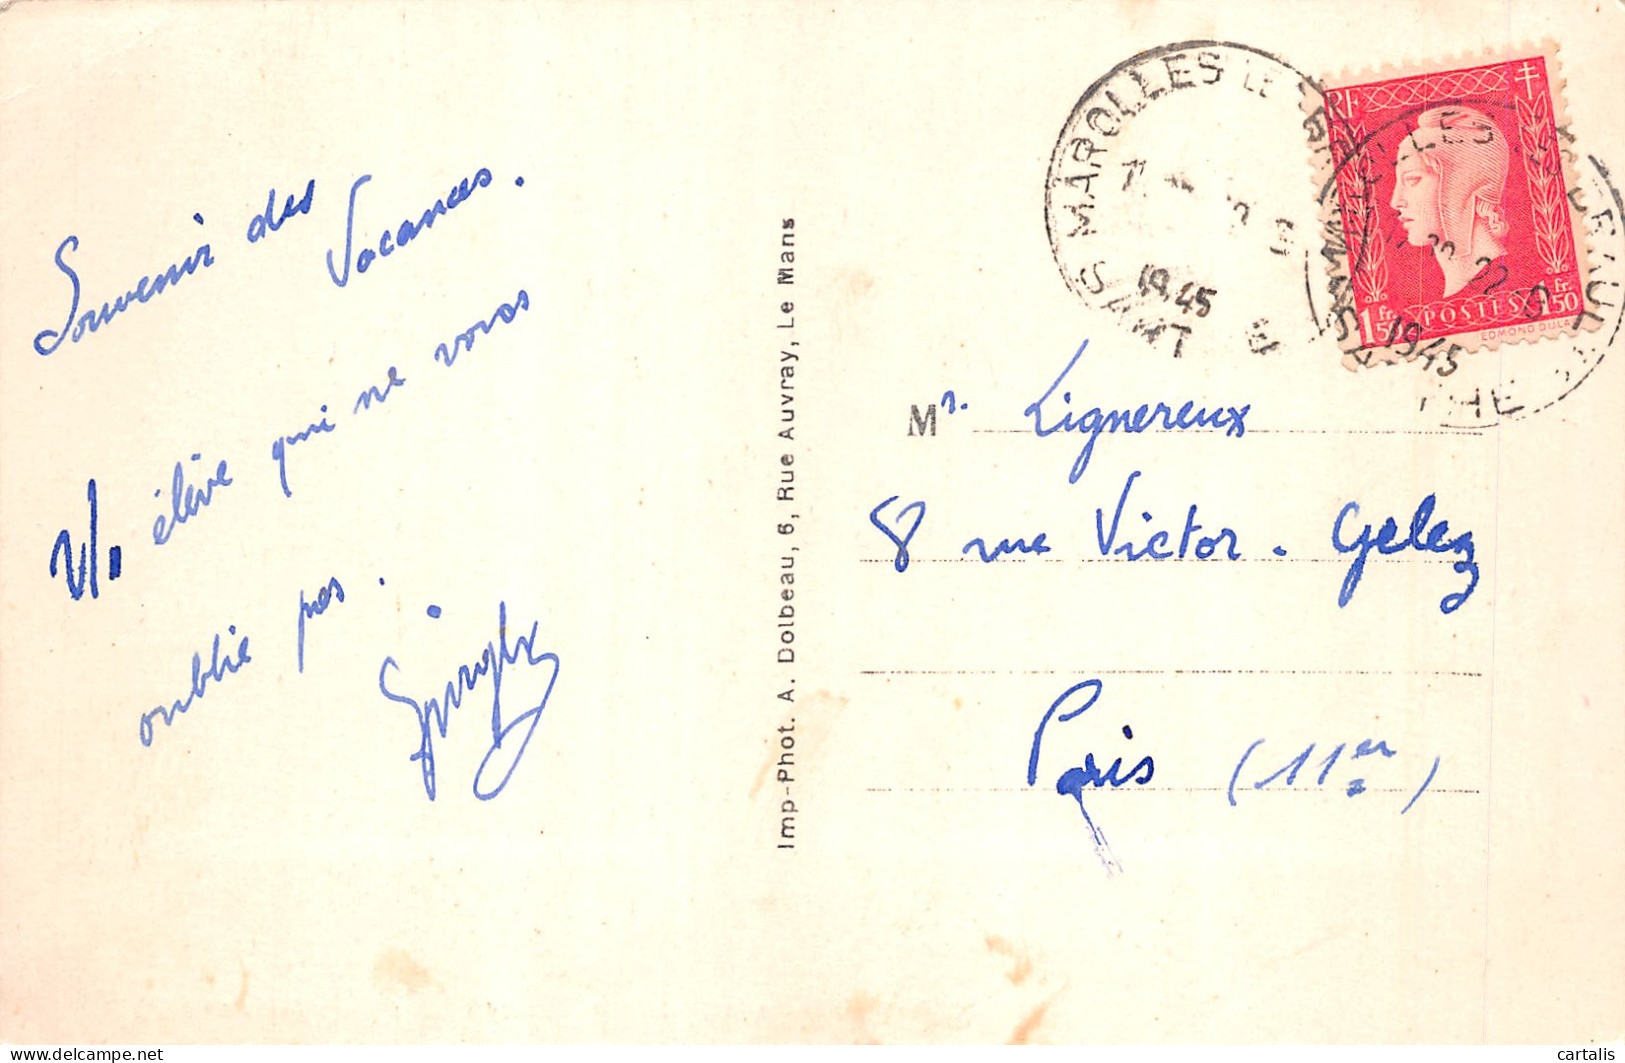 Souvenir des
Vacances.
V/. élève qui ne vous
oublie pas.
Imp-Phot. A. Dolbeau, 6, Rue Auvray, Le Mans
MAROLLES
1945
RF
1 Fr. 50
POSTES
1 Fr. 50
EDMOND DULAC
1945
Mr. Lignereux
8 rue Victor. Gelez
Paris (11er)
delcampe.net
cartalis